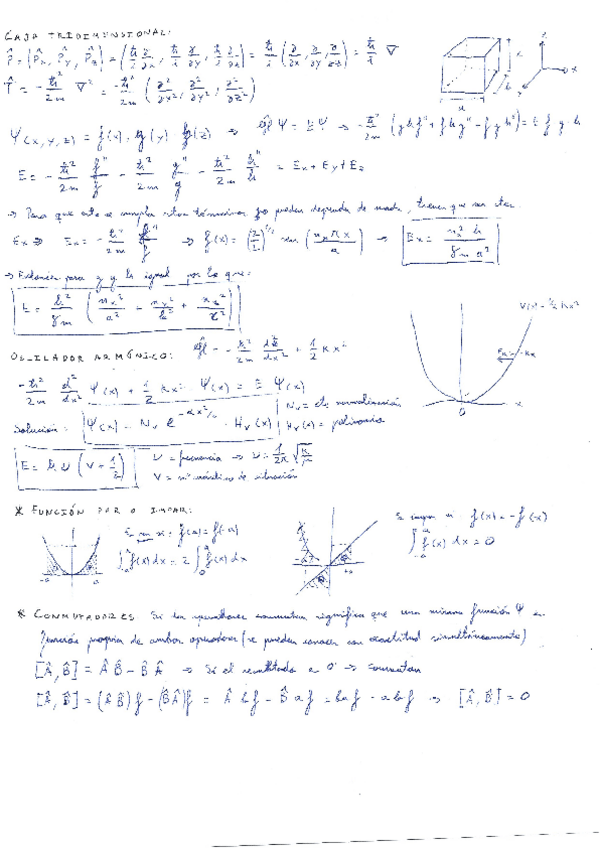 CAJA TRIDIMENSIONAL:
p̂ = (p̂x, p̂y, p̂z) = (ħ/i ∂/∂x, ħ/i ∂/∂y, ħ/i ∂/∂z) = ħ/i (∂/∂x, ∂/∂y, ∂/∂z) = ħ/i ∇
T̂ = -ħ²/2m ∇² = -ħ²/2m (∂²/∂x², ∂²/∂y², ∂²/∂z²)
Ψ(x,y,z) = f(x)·g(y)·h(z) ⇒ ĤΨ = EΨ → -ħ²/2m (g h f'' + f h g'' - f g h'') = E f g h
E = -ħ²/2m f''/f - ħ²/2m g''/g - ħ²/2m h''/h = Ex + Ey + Ez
⇒ Para que esto se cumpla estos términos no pueden depender de nada, tienen que ser ctes.
Ex ⇒ Ex = -ħ²/2m f''/f ⇒ f(x) = (2/a)^1/2 sen (nx π x / a) → Ex = nx² h / 8m a²
⇒ Entonces para y y h igual por lo que:
E = h²/8m (nx²/a² - ny²/b² + nz²/c²)
OSCILADOR ARMÓNICO: Ĥ = -ħ²/2m d²/dx² + 1/2 Kx²
V(x) = 1/2 Kx²
Fx = -Kx
0 x
-ħ²/2m d²/dx² Ψ(x) + 1/2 Kx² Ψ(x) = E Ψ(x)
Solución: Ψ(x) = Nv e^-αx²/2 · Hv(x)
Nv = cte normalización
Hv(x) = polinomio
E = hν (v + 1/2)
ν = frecuencia → ν = 1/2π √K/μ
v = nº cuántico de vibración
* FUNCIÓN PAR O IMPAR:
Es par si: f(a) = f(-a)
∫ f(x) dx = 2 ∫ f(x) dx
Es impar si f(x) = -f(-x)
∫ f(x) dx = 0
* CONMUTADORES Si los operadores conmutan significa que una misma función Ψ es
función propia de ambos operadores (se pueden conocer con exactitud simultáneamente)
[Â, B̂] = Â B̂ - B̂ Â ⇒ Si el resultado es 0 ⇒ conmutan
[Â, B̂] = (Â B̂) f - (B̂ Â) f = Â b f - B̂ a f = b a f - a b f ⇒ [Â, B̂] = 0